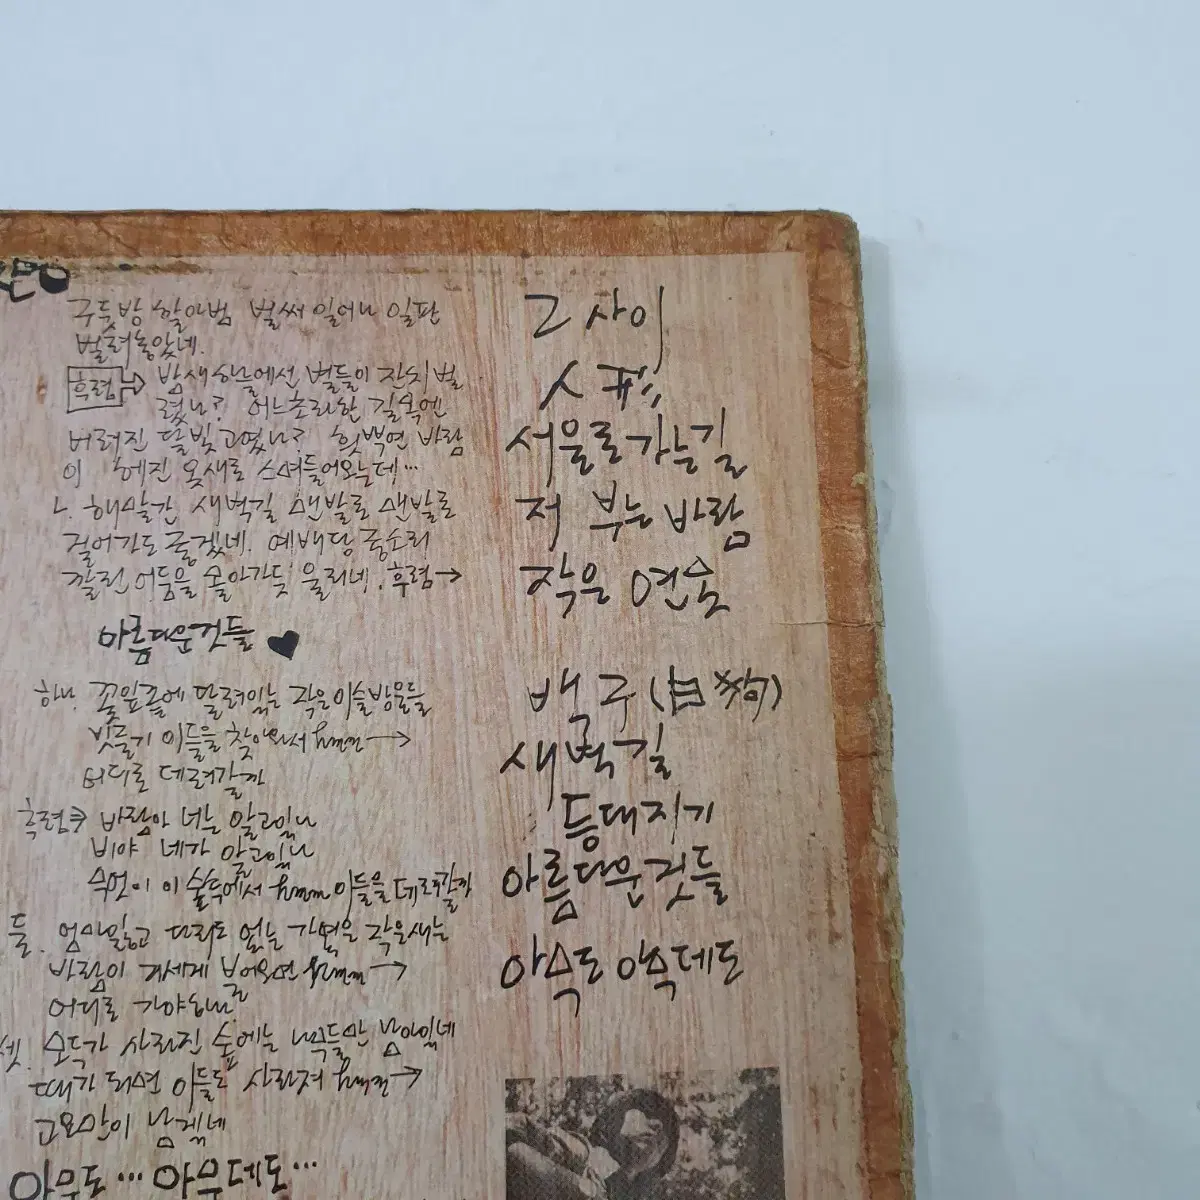 구둣방 할아범 벌써 일어나 일판
벌려놓았네.
후렴→ 밤새 하늘에선 별들이 잔치벌
렸나? 어느 초라한 길목엔
버려진 달빛 고였나? 힛뿌연 바람
이 헤진 옷새로 스며들어오는데…
ㄴ. 해말간 새벽길 맨발로 맨발로
걸어가도 좋겠네. 예배당 종소리
깔린 어둠을 몰아가듯 울리네. 후렴→
아름다운것들 ♥
하나. 꽃잎끝에 달려있는 작은이슬방울들
빗줄기 이들을 찾아와서 음—→
어디로 데려갈까
후렴→ 바람아 너는 알고있나
비야 네가 알고있나
무엇이 이 숲속에서 음— 이들을 데려갈까
둘. 엄마잃고 다리도 없는 가엾은 작은새는
바람이 거세게 불어오면 음—→
어디로 가야하나
셋. 모두가 사라진 숲에는 나무들만 남아있네
때가 되면 이들도 사라져 음—→
고요만이 남겠네
아무도…아무데도…
그 사이
서울로 가는길
저 부는 바람
작은 연못
백구(白狗)
새벽길
등대지기
아름다운것들
아무도 아무데도